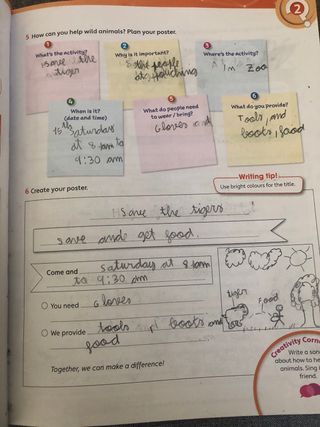 2
5 How can you help wild animals? Plan your poster.
1
What's the activity?
save the
tiger
2
Why is it important?
the people
poaching
3
Where's the activity?
In Zoo
4
When is it?
(date and time)
15th Saturday
at 8 am to
9:30 am
5
What do people need
to wear / bring?
Gloves and
6
What do you provide?
Tools, and
boots, food
Writing tip!
Use bright colours for the title.
6 Create your poster.
Save the tigers
save ande get food.
Come and Saturday at 8 am
to 9:30 am
You need Gloves
We provide tools, boots and
food
tiger
Food
Together, we can make a difference!
Creativity Corn
Write a son
about how to he
animals. Sing i
friend.